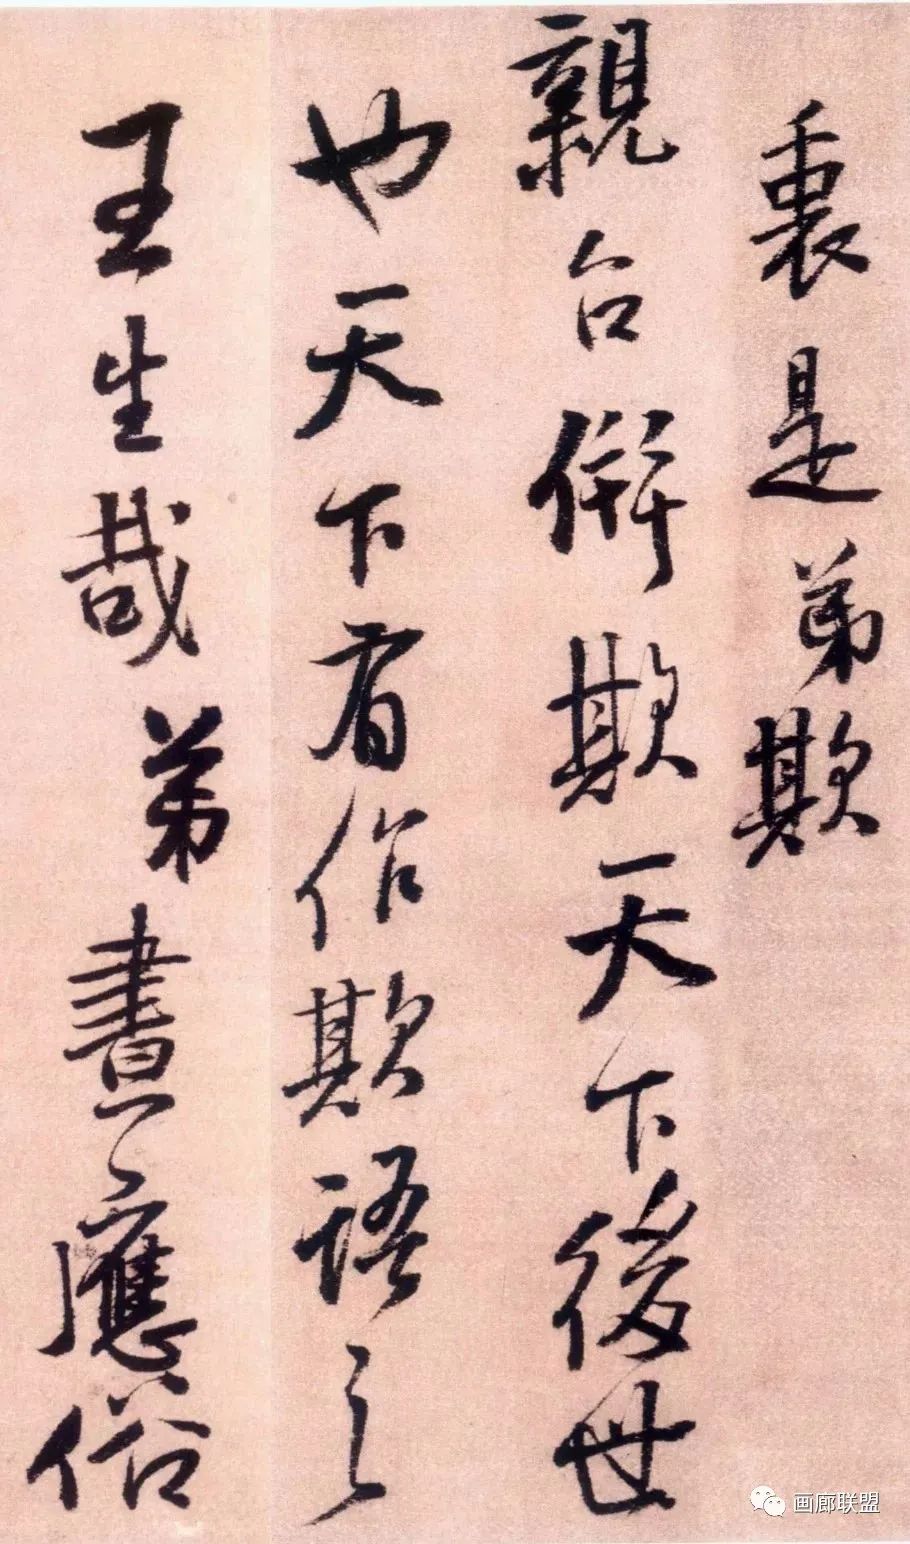 裏是弟欺
親台併欺天下後世
也天下有作欺語之
王生哉弟書〻應俗
画廊联盟